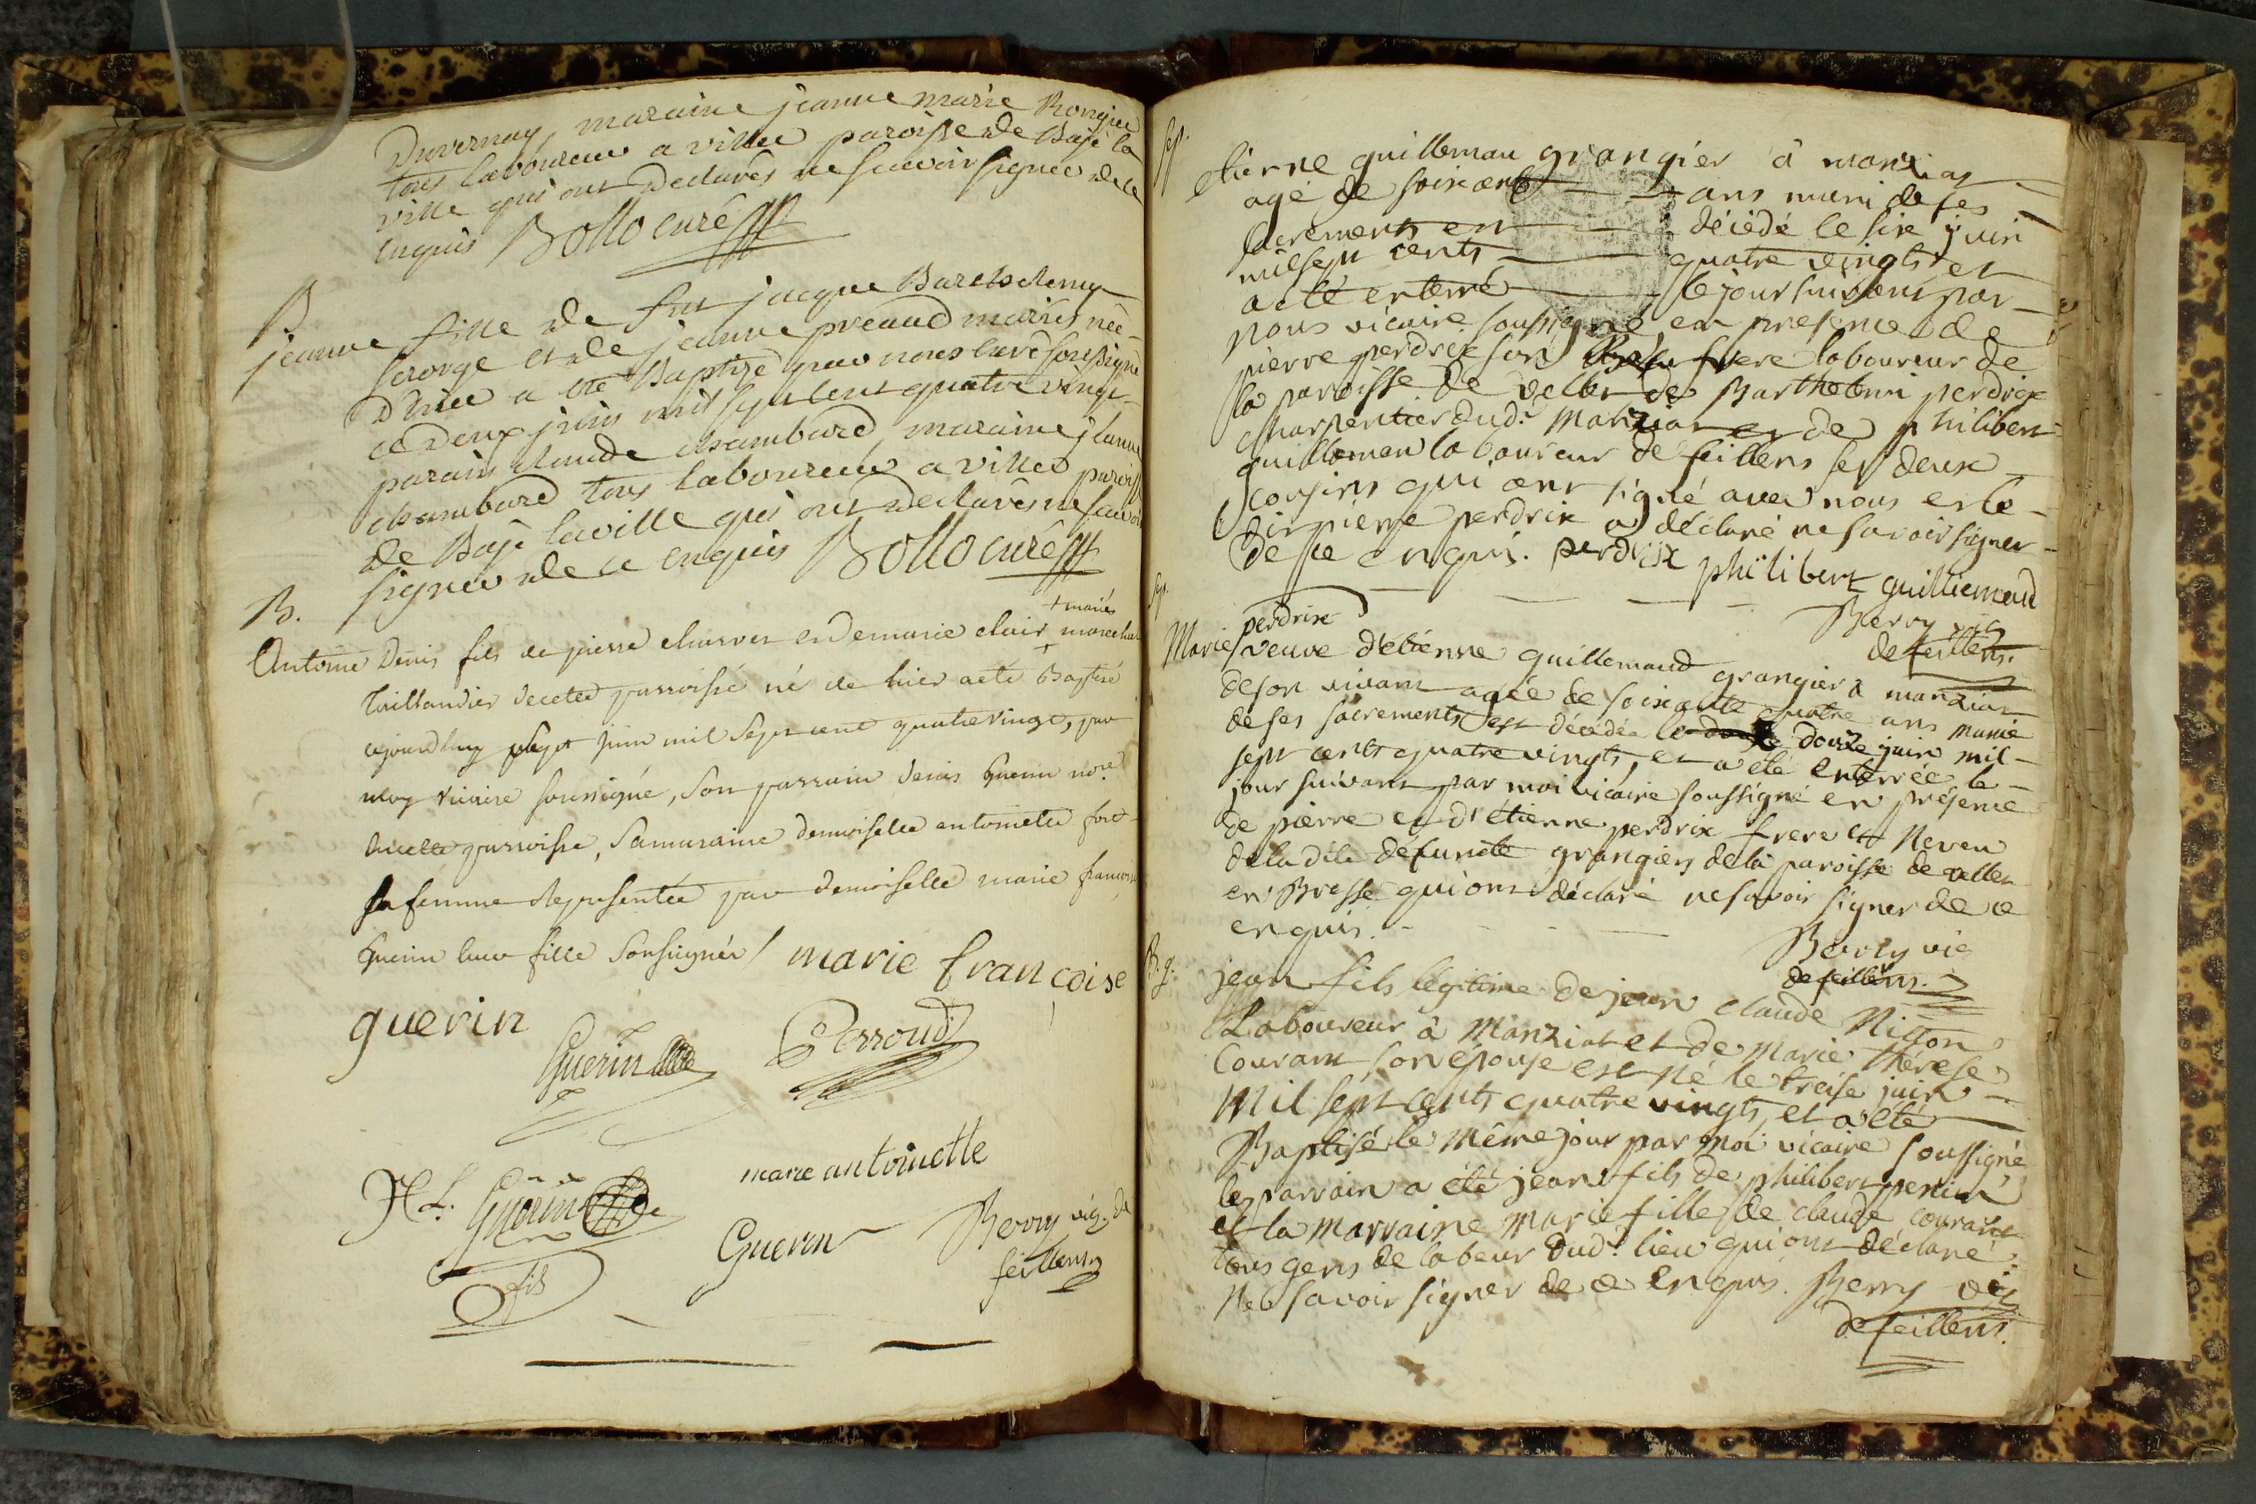 Duvernay, maraine jeanne marie
tous laboureur a ville paroisse de Bagé la
ville qui ont Declarés ne scavoir signer de ce
enquis Bollo curé
B.
jeanne fille de fut jacque
et de jeanne preaud mariés née
D'hier a été Baptizé par nous curé soussigné
ce Deux juin mil sept cent quatre vingt
parain claude chambard, maraine jeanne
chambard tous laboureur a ville paroiss
de Bagé la ville qui ont Declarés ne scavoir
signer de ce enquis Bollo curé
B.
+ mariés
Antoine Denis fils de pierre charvet et de marie clair + marechal
taillandier de cette parroisse né de hier a été Baptisé
cejourdhuy sept juin mil sept cent quatre vingt, par
moy vicaire soussigné, son parrain denis Guerin nore
parroisse, sa maraine demoiselle antoinette
sa femme Representée par demoiselle marie francoise
Guerin leur fille soussignés / marie francoise
guerin
Guerin Perroud
Guerin marie antoinette
fils Guerin Berry vic. de
feillens
sep.
etienne guilleman grangier à manziat
agé de soixante ans muni de ses
sacrements est décédé le six juin
mil sept cents quatre vingts et
a eté enterré le jour suivant par
nous vicaire soussigné en presence de
pierre perdrix son Beau frere laboureur de
la paroisse de de Barthelemi perdrix
charpentier dud. Manziat et de philibert
guilleman laboureur de feillens ses deux
cousins qui ont signé avec nous et le
dit pierre perdrix a déclaré ne savoir signer
de ce enquis. perdrix philibert guilliemaud
Berry vic
de feillens.
Sep.
perdrix
Marie / veuve d'etienne guillemaud grangier à manziat
de son vivant agée de soixante quatre ans munie
de ses sacrements est décédée le douze juin mil
sept cents quatre vingts, et a été enterrée le
jour suivant par moi vicaire soussigné en présence
de pierre et d'étienne perdrix frere et Neveu
de la dite défuncte grangiers de la paroisse de
en Bresse qui ont déclaré ne savoir signer de ce
enquis.
Berry vic
de feillens.
B. g.
jean fils légitime de jean claude
Laboureur à Manziat et de Marie thérese
Courant son epouse est né le treise juin
Mil sept cents quatre vingts, et a été
Baptisé le même jour par moi vicaire soussigné
le parrain a été jean fils de philibert perrin
et la marraine Marie fille de claude courant
tous gens de labeur dud. lieu qui ont déclaré
Ne savoir signer de ce enquis. Berry vic
de feillens.